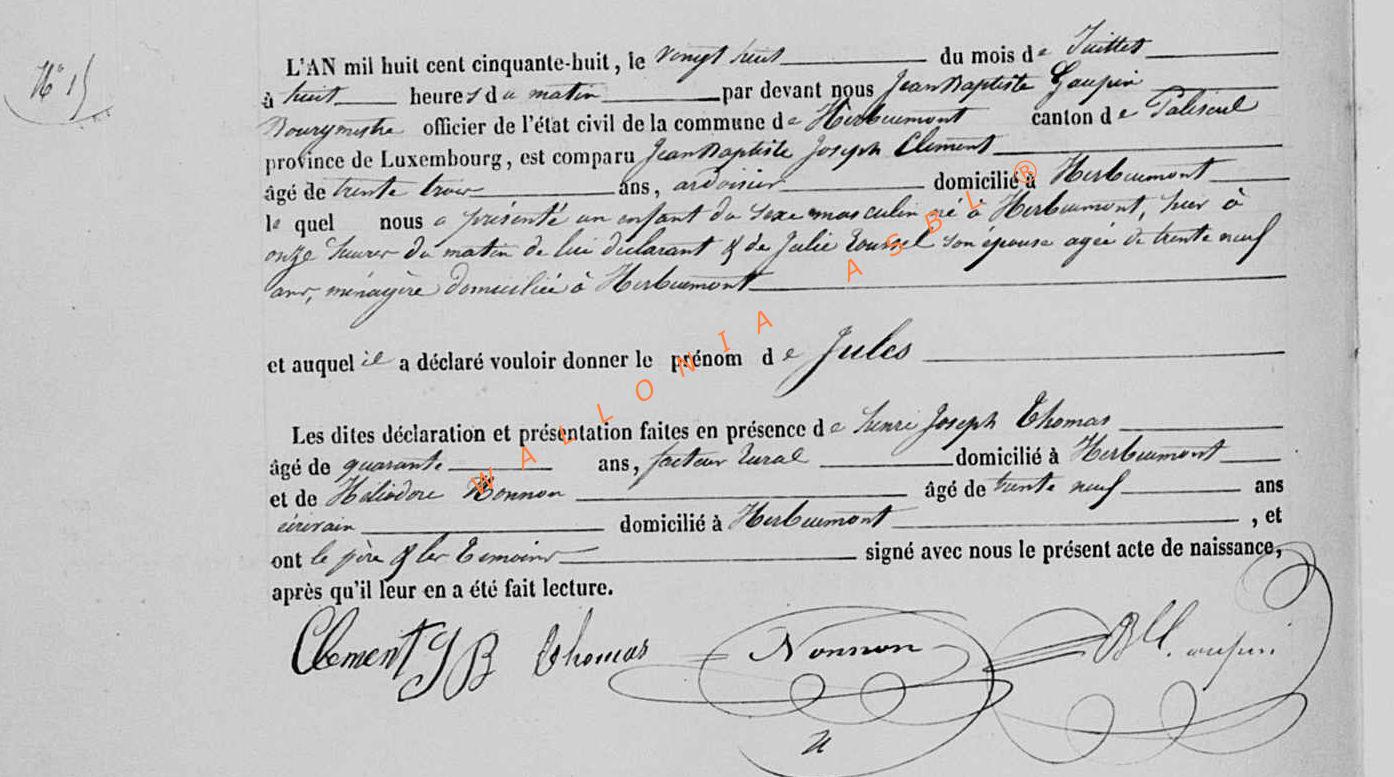 N° 15
L'AN mil huit cent cinquante-huit, le vingt huit du mois de Juillet
à huit heures du matin par devant nous Jean Baptiste Goupin
Bourgmestre officier de l'état civil de la commune de Herbeumont canton de Paliseul
province de Luxembourg, est comparu Jean Baptiste Joseph Clement
âgé de trente trois ans, ardoisier domicilié à Herbeumont
le quel nous a présenté un enfant du sexe masculin né à Herbeumont, hier à
onze heures du matin de lui déclarant & de Julie Roussel son épouse agée de trente neuf
ans, ménagère domiciliée à Herbeumont
et auquel il a déclaré vouloir donner le prénom de Jules
Les dites déclaration et présentation faites en présence de henri Joseph Thomas
âgé de quarante ans, facteur rural domicilié à Herbeumont
et de Héliodore Nonnon âgé de trente neuf ans
écrivain domicilié à Herbeumont, et
ont le père & les temoins signé avec nous le présent acte de naissance,
après qu'il leur en a été fait lecture.
Clement J B Thomas Nonnon
WALLONIA ASBL ®